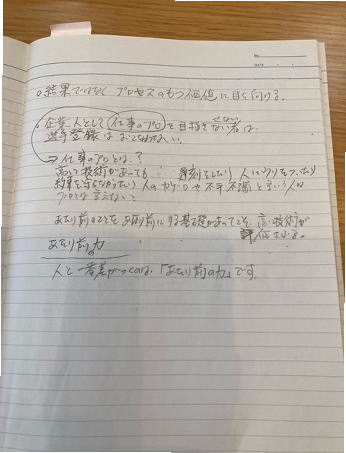 ○結果ではなく プロセスのもつ価値に目を向ける。
○企業人として仕事のプロを目指さない者は
選手登録はおこなわない。
→仕事のプロとは?
高い技術があっても 遅刻をしたり 人にウソをついたり
約束を守らなかったり 人のカゲ口や不平不満を言う人は
プロとは言えない
あたり前のことをあたり前にする基礎があってこそ、高い技術が
評価される。
あたり前の力
人と一番差がつくのは、「あたり前の力」です。